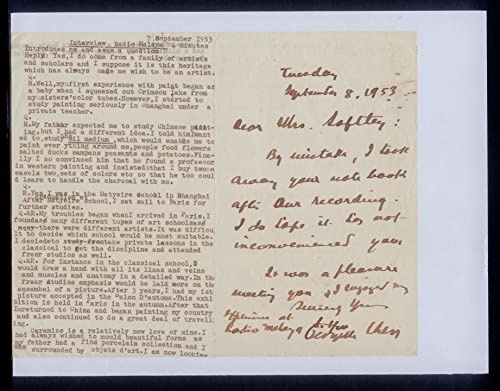 7 September 1953
Interview Radio Malaya minutes
Introduces me and asks a question.
Reply: Yes, I do come from a family of artists
and scholars and I suppose it is this heritage
which has always made me wish to be an artist.
Q.
R.My first experience with paint began as
a baby when I squeezed out Crimson lake from
my sisters'color tubes.However,I started to
study painting seriously in Shanghai under a
private teacher.
Q.
R.My father expected me to study Chinese paint-
ing,but I had a different idea.I told him I want
ed to study oil medium,which would enable me to
paint everything around me,people food flowers
salted ducks sampans peasants and potatoes.Fina-
lly I so convinced him that he found a professor
in western painting and insisted that I buy two
easels two sets of colors etc so that he too coul
d learn to handle the charcoal with me.
Q.
R.Yes,I was in the Motyeire School in Shanghai
After Motyeire School,I set sail to Paris for
further studies.
Q.&R.My troubles began when I arrived in Paris.I
found as many different types of art schools as
there were different artists.It was difficul
t to decide which school would be most suitable.
I decided to take private lessons in the
classical to get the discipline and attended
freer studios as well.
Q.&R. For instance in the classical school,I
would draw a hand with all its lines and veins
and muscles and anatomy in a detailed way.In the
freer studios emphasis would be laid more on the
ensembel of a picture.After 3 years,I had my 1st
picture accepted in the Salon D'automne.This exhi
bition is held in Paris in the autumn.After that
I returned to China and began painting my country
and also continued to do a great deal of travell
ing.
Q. Ceramics is a relatively new love of mine.I
had always wished to mould beautiful forms as
my father had a fine porcelain collection and I
was surrounded by objets d'art.I am now looking
Tuesday
September 8, 1953
Dear Mrs.
By mistake, I took
away your note book
after our recording.
I do hope it has not
inconvenienced you.
It was a pleasure
meeting you & I enjoyed my
experience at
Radio Malaya
Sincerely Yours
Georgette Chen